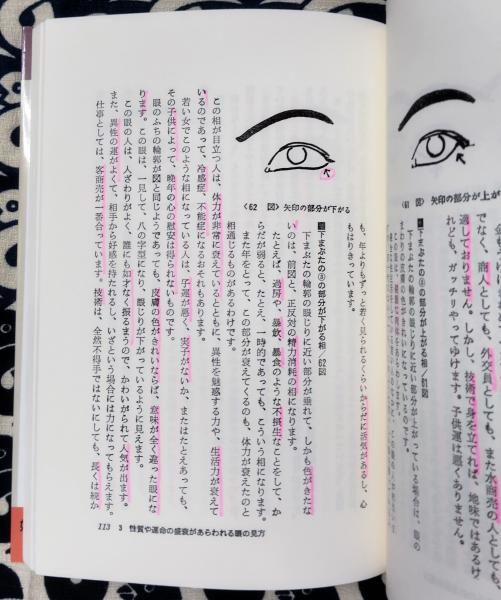 でなく、商人としても、外交員としても、また水商売の人としても、
適しておりません。しかし、技術で身を立てれば、地味ではあるけ
れども、ガッチリやってゆけます。子供運は悪くありません。
〈61 図〉矢印の部分が上が
■下まぶたの③の部分が上がる相/61図
下まぶたの輪郭の眼じりに近い部分が上がっている場合は、眼の
まわりの皮膚の色がきれいになっているのです。
も、年よりもずっと若く見られるくらいからだに活気があるし、心
もはりきっています。
〈62 図〉矢印の部分が下がる
■下まぶたの③の部分が下がる相/62図
下まぶたの輪郭の眼じりに近い部分が垂れて、しかも色がきたな
いのは、前図と、正反対の精力消耗の相になります。
たとえば、過房や、暴飲、暴食のような不摂生なことをして、か
らだが弱ると、たとえ、一時的であっても、こういう相になります。
また年をとって、この部分が衰えてくるのも、体力が衰えたのと
相通じるものがあるわけです。
この相が目立つ人は、体力が非常に衰えているとともに、異性を魅惑する力や、生活力が衰えて
いるのであって、冷感症、不能症になるおそれもあります。
若い女でこのような相になっている人は、子運が悪く、実子がないか、またはたとえあっても、
その子供によって、晩年の心の慰安は得られないものです。
眼のふちの輪郭が図と同じようであっても、皮膚の色がきれいならば、意味が全く違った眼にな
ります。この眼は、一見して、八の字型になり、眼じりが下がっているように見えます。
この眼の人は、人ざわりがよく、誰にも如才なく振るまうので、かわいがられて人気が出ます。
また、異性の運がよくて、相手から好感を持たれるし、いざという場合には力になってもらえます。
仕事としては、客商売が一番合っています。技術は、全然不得手ではないにしても、長くは続か
113 3 性質や運命の盛衰があらわれる眼の見方